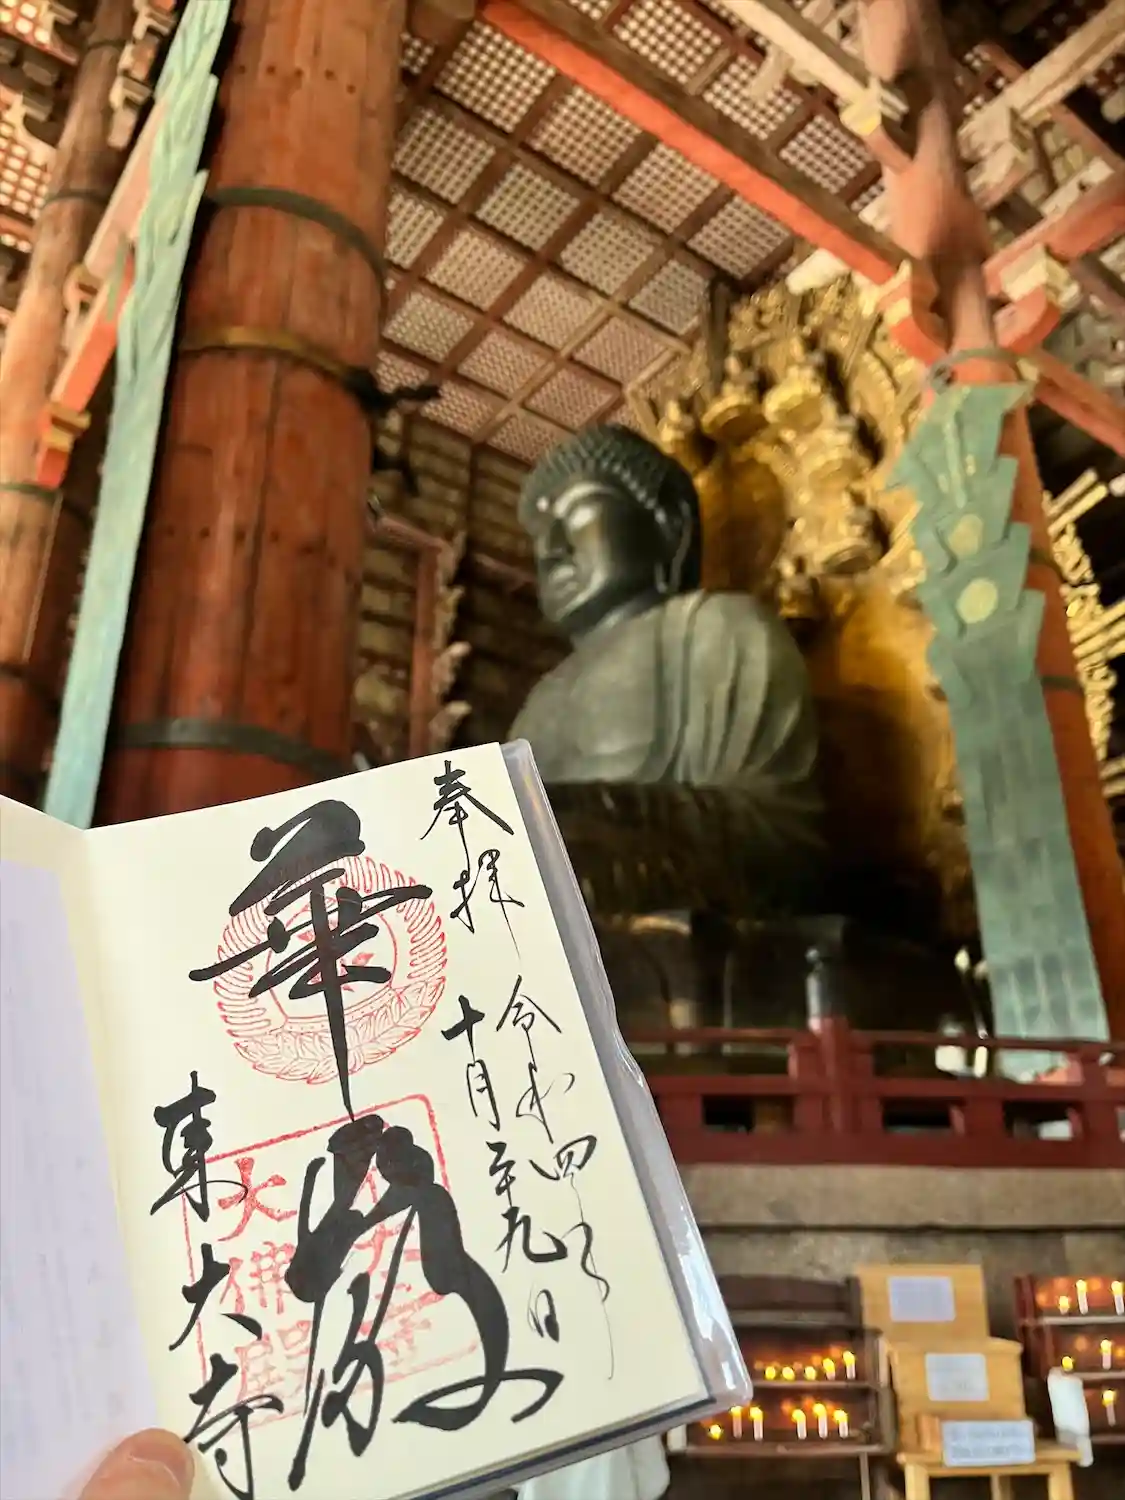 奉拝
令和四年
十月二十九日
華厳
東大寺
大佛殿